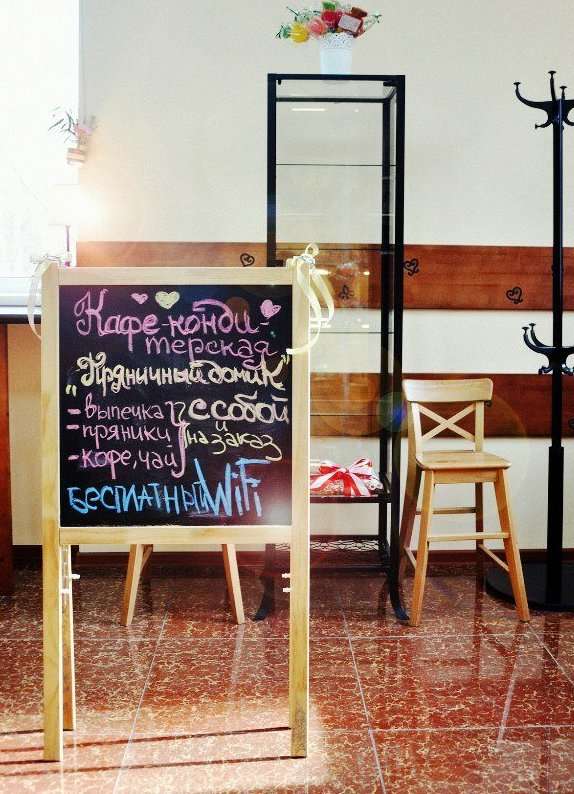 Кафе-конди-
терская
"Пряничный домик"
- выпечка
- пряники
- кофе, чай
с собой
и
на заказ
БЕСПЛАТНЫЙ WiFi